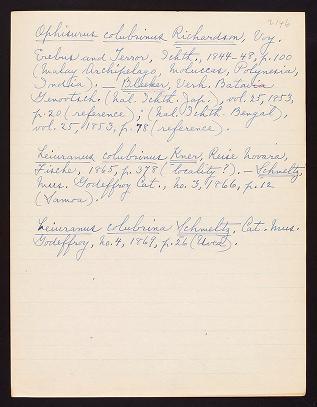 2146
Ophisurus colubrinus Richardson, Voy.
Erebus and Terror, Ichth., 1844-48, p. 100
(Malay Archipelago, Moluccas, Polynesia,
India). — Bleeker, Verh. Batavia
Genootsch. (Nal. Ichth. Jap.), vol. 25, 1853,
p. 20 (reference); (Nal. Ichth. Bengal),
vol. 25, 1853, p. 78 (reference).
Leiuranus colubrinus Kner, Reise Novara,
Fische, 1865, p. 378 (locality?). — Schmeltz,
Mus. Godeffroy Cat., no. 3, 1866, p. 12
(Samoa).
Leiuranus colubrina Schmeltz, Cat. Mus.
Godeffroy, no. 4, 1869, p. 26